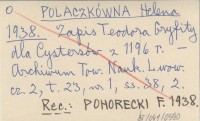 O POLACZKÓWNA Helena
1938. Zapis Teodora Gryfity
dla Cystersów z 1196 r.
Archiwum Tow. Nauk. Lwow.
cz. 2, t. 23, nr. 1, ss. 38, 2.
Rec.: POHORECKI F. 1938.